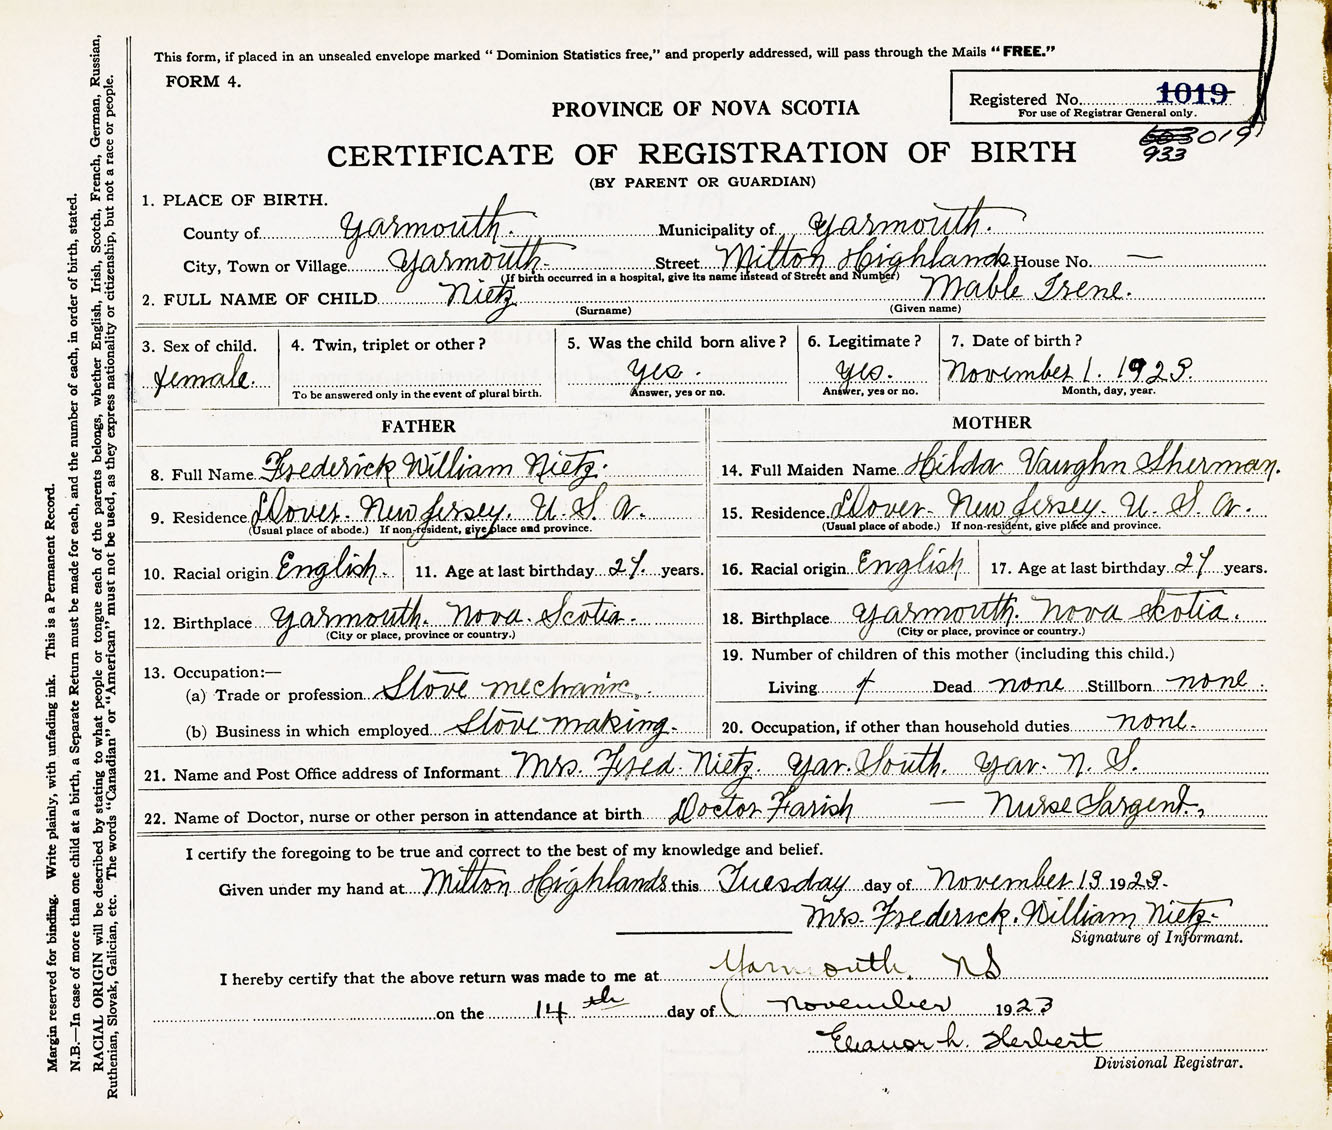 This form, if placed in an unsealed envelope marked “ Dominion Statistics free,” and properly addressed, will pass through the Mails “FREE.”
FORM 4.
Registered No. 1019
For use of Registrar General only.
PROVINCE OF NOVA SCOTIA
019
933
CERTIFICATE OF REGISTRATION OF BIRTH
(BY PARENT OR GUARDIAN)
1. PLACE OF BIRTH.
County of Yarmouth. Municipality of Yarmouth.
City, Town or Village Yarmouth- Street Milton Highlands House No. —
(If birth occurred in a hospital, give its name instead of Street and Number)
2. FULL NAME OF CHILD Nietz Mable Irene.
(Surname) (Given name)
3. Sex of child. 4. Twin, triplet or other? 5. Was the child born alive? 6. Legitimate? 7. Date of birth?
female. Yes. Yes. November 1. 1923.
To be answered only in the event of plural birth. Answer, yes or no. Answer, yes or no. Month, day, year.
FATHER MOTHER
8. Full Name Frederick William Nietz. 14. Full Maiden Name Hilda Vaughn Sherman.
9. Residence Dover. New Jersey. U. S. A. 15. Residence Dover- New Jersey. U. S. A.
(Usual place of abode.) If non-resident, give place and province. (Usual place of abode.) If non-resident, give place and province.
10. Racial origin English. 11. Age at last birthday years. 16. Racial origin English 17. Age at last birthday years.
12. Birthplace Yarmouth. Nova. Scotia. 18. Birthplace Yarmouth. Nova Scotia.
(City or place, province or country.) (City or place, province or country.)
13. Occupation:— 19. Number of children of this mother (including this child.)
(a) Trade or profession Stove mechanic. Living Dead none Stillborn none.
(b) Business in which employed Stove making. 20. Occupation, if other than household duties none.
21. Name and Post Office address of Informant Mrs. Fred. Nietz. Yar. South. Yar. N. S.
22. Name of Doctor, nurse or other person in attendance at birth Doctor Farish — Nurse Sargent.
I certify the foregoing to be true and correct to the best of my knowledge and belief.
Given under my hand at Milton Highlands this Tuesday day of November 13 1923.
Mrs. Frederick. William Nietz.
Signature of Informant.
I hereby certify that the above return was made to me at Yarmouth, NS
on the 14th day of November 1923
Eleanor L. Herbert
Divisional Registrar.
Margin reserved for binding. Write plainly, with unfading ink. This is a Permanent Record.
N.B.—In case of more than one child at a birth, a Separate Return must be made for each, and the number of each, in order of birth, stated.
RACIAL ORIGIN will be described by stating to what people or tongue each of the parents belongs, whether English, Irish, Scotch, French, German, Russian,
Ruthenian, Slovak, Galician, etc. The words “Canadian” or “American” must not be used, as they express nationality or citizenship, but not a race or people.